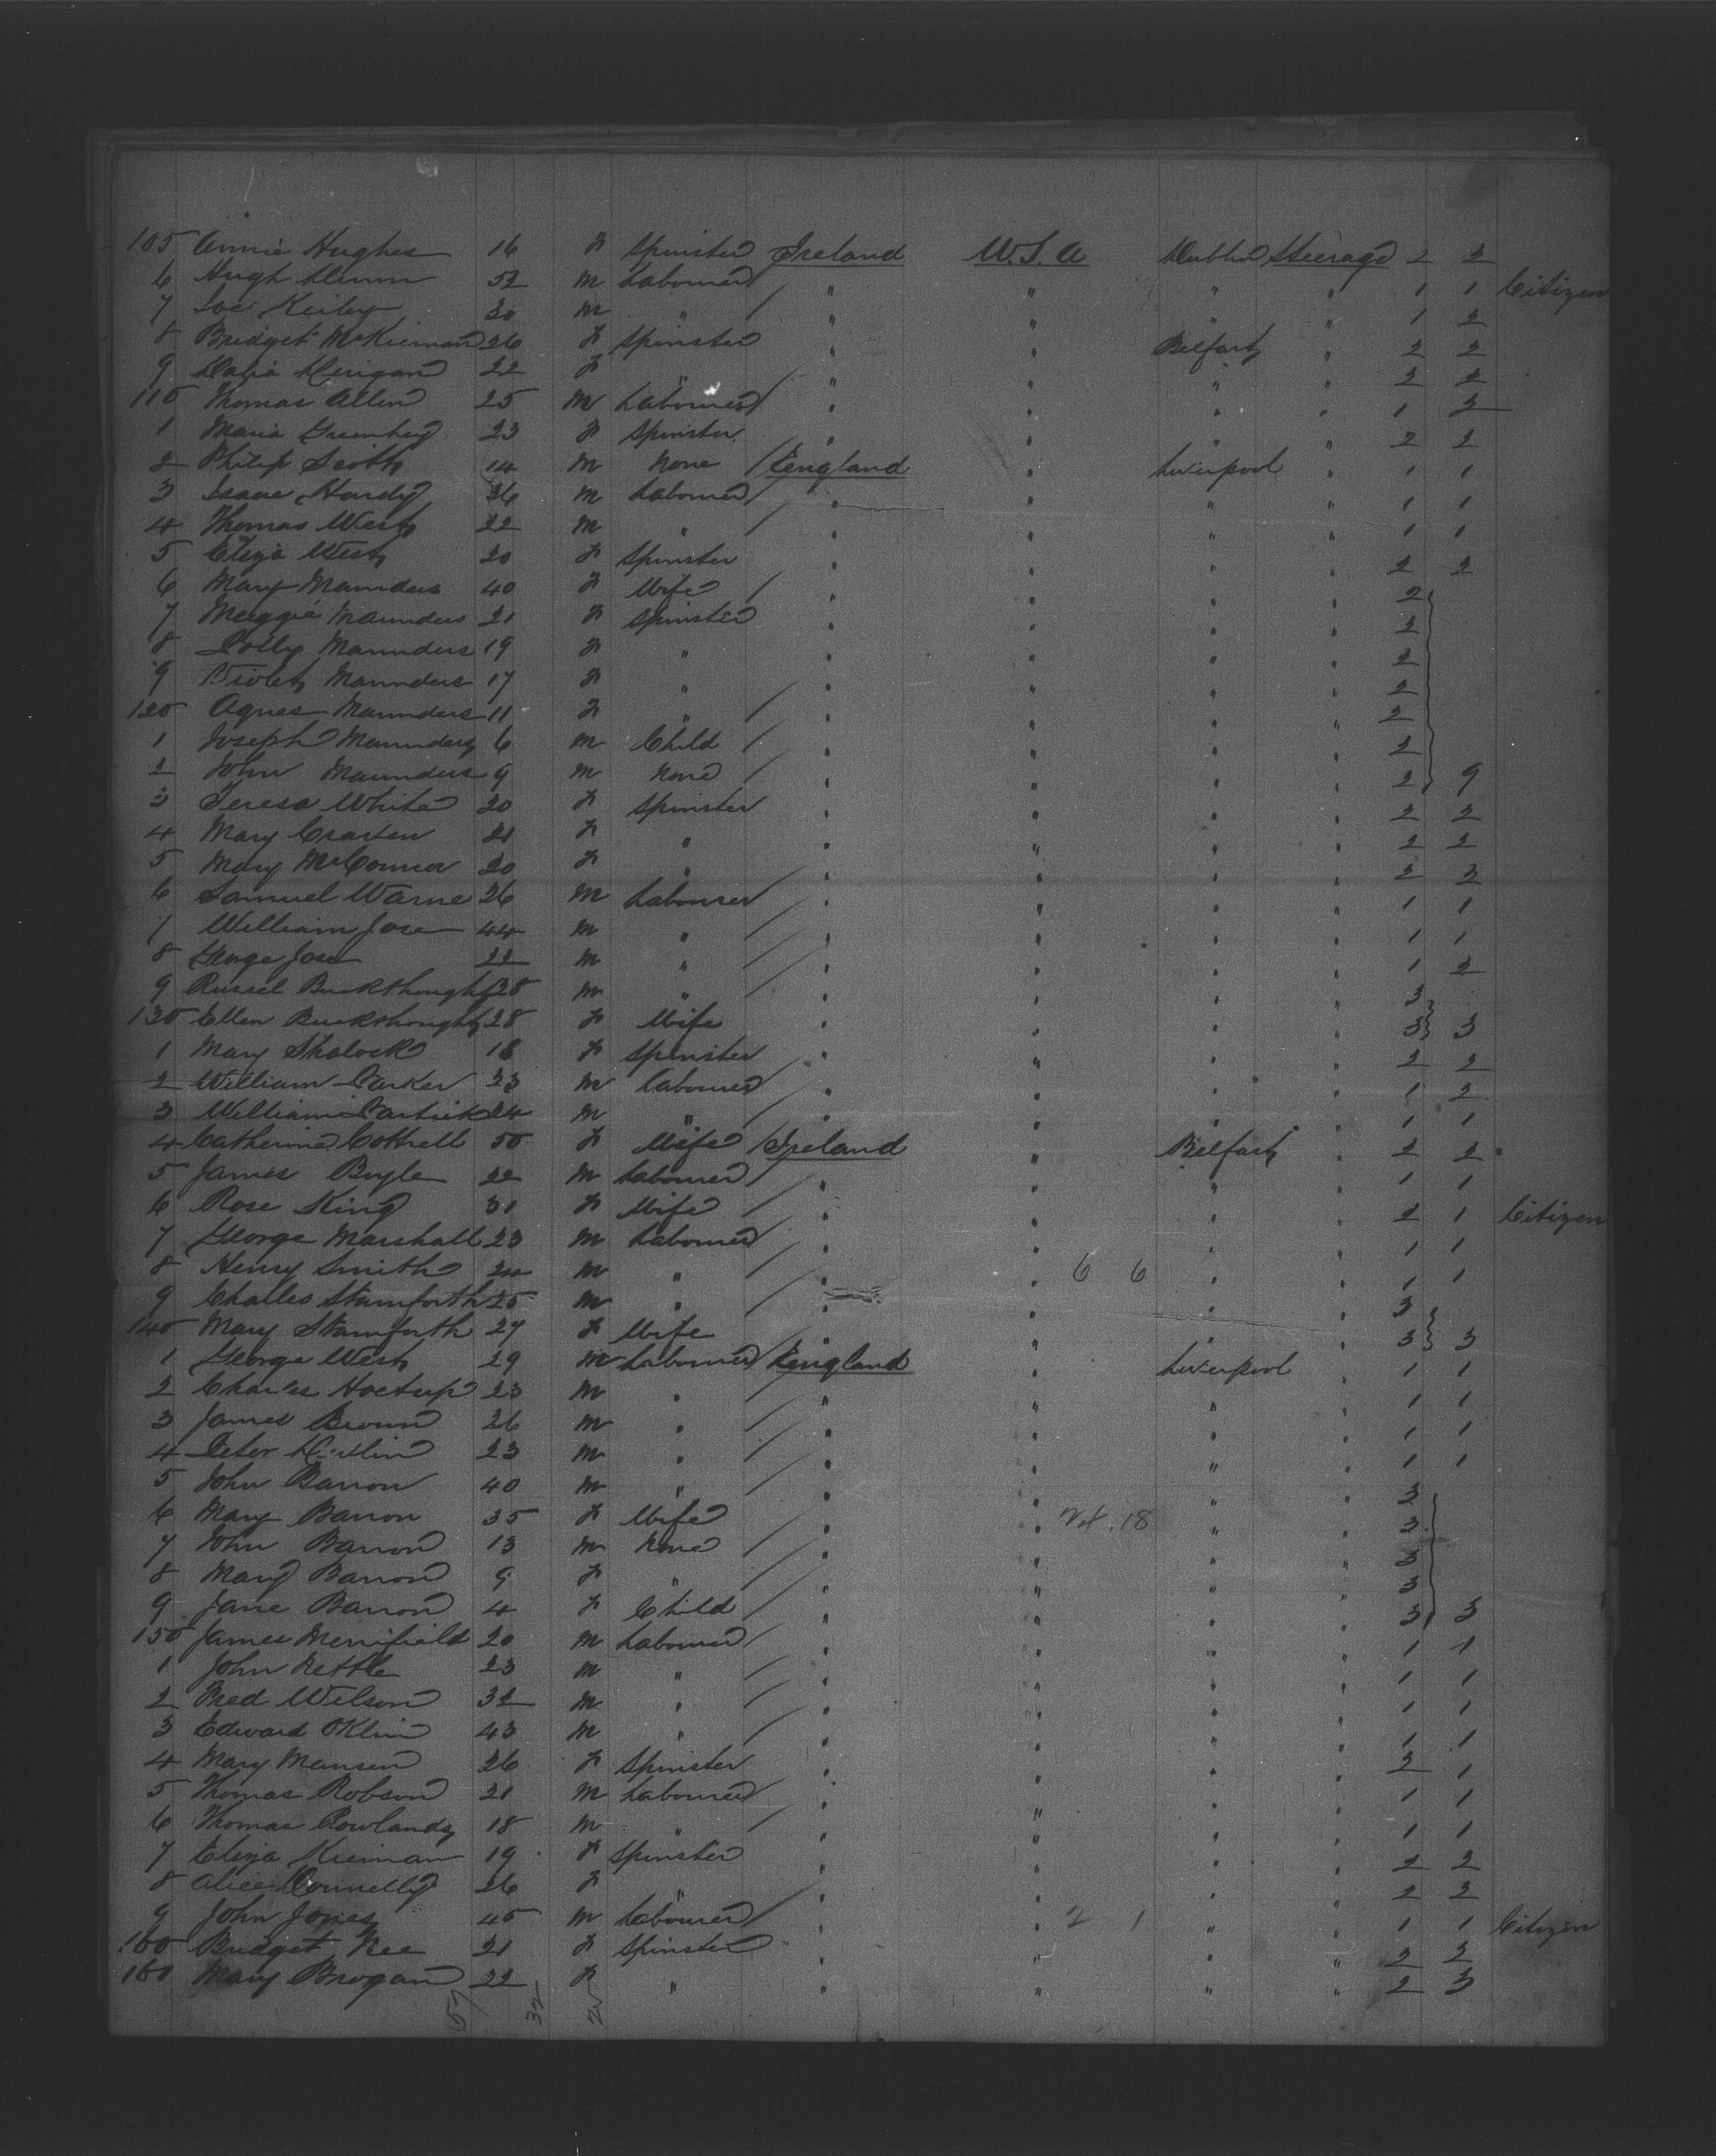 105 Annie Hughes 16 F Spinster Ireland U.S.A Dublin Steerage 2 2
6 Hugh 52 M Labourer " " " " 1 1 Citizen
7 30 M " / " " " " 1 2
8 Bridget McKiernan 26 F Spinster " " Belfast " 2 2
9 22 F " / " " " " 2 2
110 Thomas Allen 25 M Labourer / " " " " 1 2
1 Maria 23 F Spinster " " " " 2 2
2 Philip Scott 14 M None / England " Liverpool " 1 1
3 Isaac Hardy 36 M Labourer / " " " " 1 1
4 Thomas West 22 M " / " " " " 1 1
5 Eliza West 20 F Spinster " " " " 2 2
6 Mary Maunders 40 F Wife / " " " " 2
7 Maggie Maunders 21 F Spinster " " " " 2
8 Dolly Maunders 19 F " " " " " 2
9 Violet Maunders 17 F " / " " " " 2
120 Agnes Maunders 11 F " / " " " " 2
1 Joseph Maunders 6 M Child / " " " " 2
2 John Maunders 9 M None / " " " " 2 9
3 Teresa White 20 F Spinster " " " " 2 2
4 Mary 21 F " " " " " 2 2
5 Mary 20 F " " " " " 2 2
6 Samuel Warne 26 M Labourer / " " " " 1 1
7 William Jose 44 M " / " " " " 1 1
8 George Jose 22 M " / " " " " 1 2
9 Russel Buckthought 28 M " / " " " " 3
130 Ellen Buckthought 28 F Wife " " " " 3 3
1 Mary Shalock 18 F Spinster " " " " 2 2
2 William Parker 23 M Labourer / " " " " 1 2
3 William 24 M " / " " " " 1 1
4 Catherine Cottrell 50 F Wife / Ireland " Belfast " 2 2
5 James Boyle 22 M Labourer / " " " " 1 1
6 Rose King 31 F Wife / " " " " 2 1 Citizen
7 George Marshall 23 M Labourer " " " " 1 1
8 Henry Smith 24 M " / " " 6 6 " " 1 1
9 Charles Stamforth 25 M " / " " " " 3
140 Mary Stamforth 27 F Wife " " " " 3 3
1 George West 29 M Labourer / England " Liverpool " 1 1
2 Charles 23 M " / " " " " 1 1
3 James Brown 26 M " / " " " " 1 1
4 Peter 23 M " / " " " " 1 1
5 John Barron 40 M " / " " " " 3
6 Mary Barron 35 F Wife / " " 24.18 " " 3
7 John Barron 13 M None / " " " " 3
8 Mary Barron 9 F " / " " " " 3
9 Jane Barron 4 F Child / " " " " 3 3
150 James Merrifield 20 M Labourer / " " " " 1 1
1 John Kettle 23 M " / " " " " 1 1
2 Fred Wilson 32 M " / " " " " 1 1
3 Edward 43 M " / " " " " 1 1
4 Mary Mansen 26 F Spinster " " " " 2 1
5 Thomas Robson 21 M Labourer / " " " " 1 1
6 Thomas Rowlands 18 M " / " " " " 1 1
7 Eliza Kiernan 19 F Spinster " " " " 2 2
8 Alice Connelly 26 F " / " " " " 2 2
9 John Jones 45 M Labourer / " " 2 1 " " 1 1 Citizen
160 Bridget Kee 21 F Spinster " " " " 2 2
161 Mary Brogan 22 F " " " " " 2 3
57 32 25